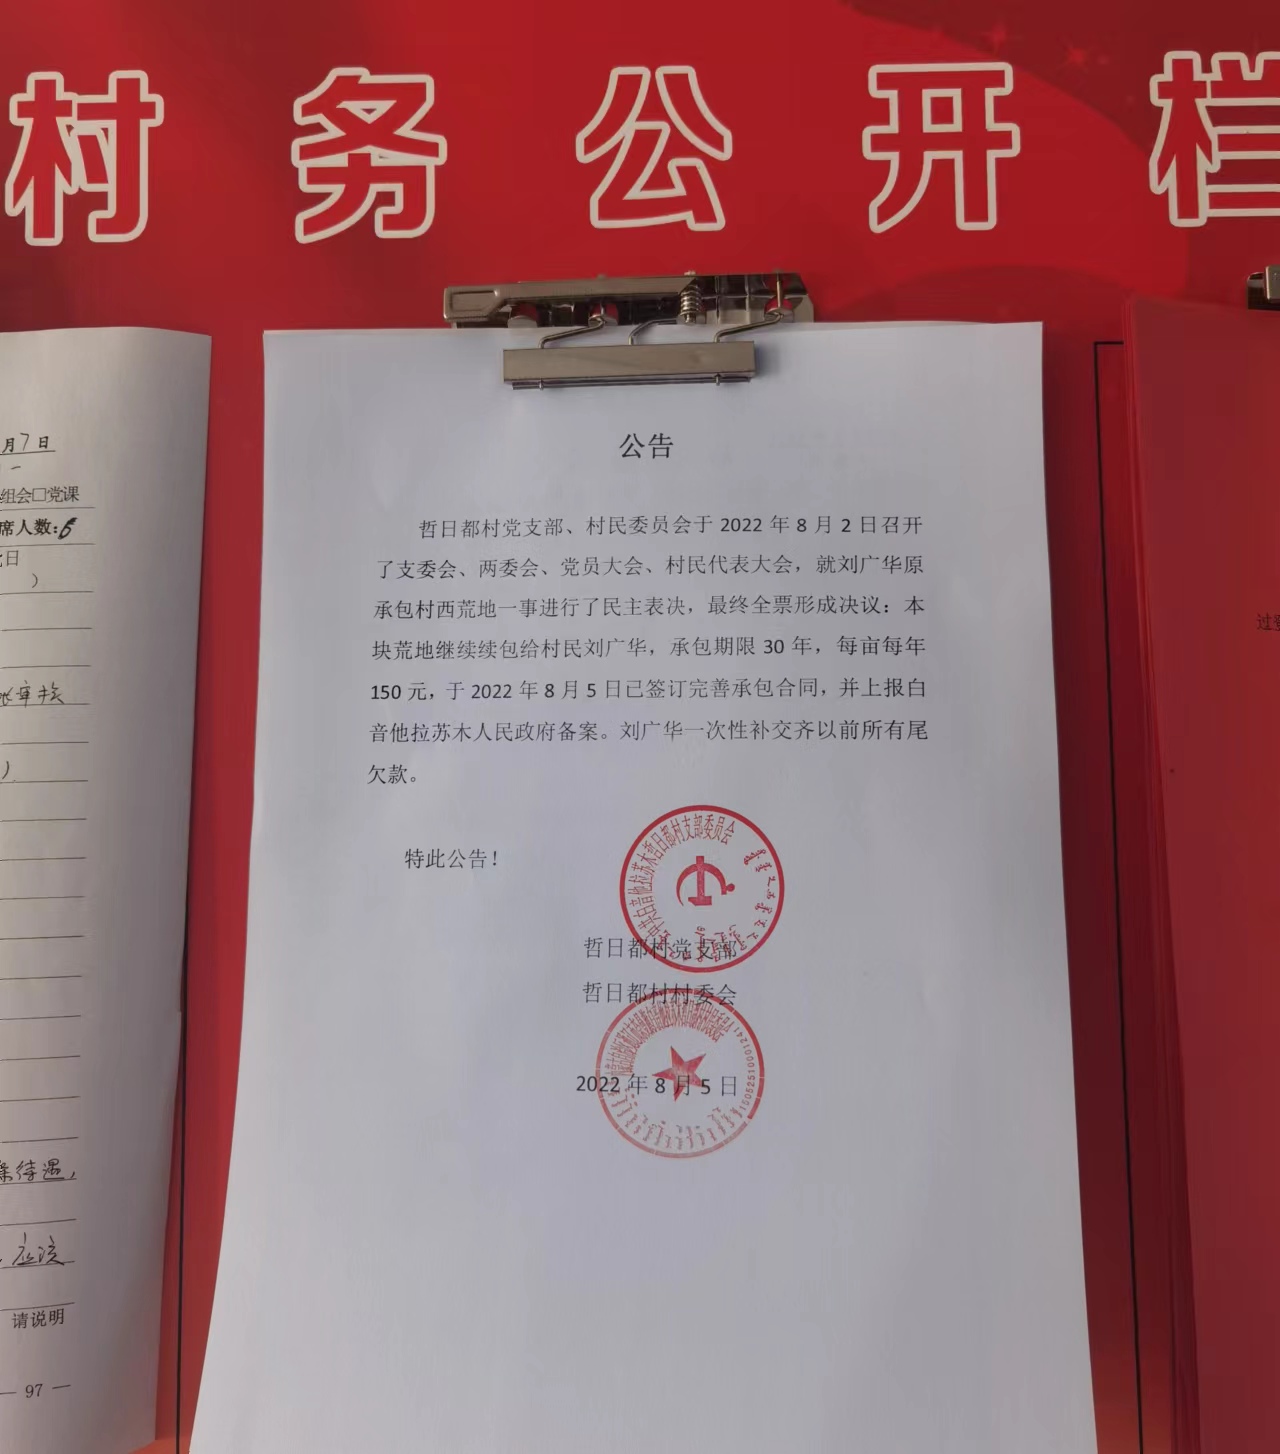 村务公开栏
月7日
组会□党课
席人数:6
日
)
)
待遇,
应该
请说明
— 97 —
公告
哲日都村党支部、村民委员会于 2022 年 8 月 2 日召开
了支委会、两委会、党员大会、村民代表大会，就刘广华原
承包村西荒地一事进行了民主表决，最终全票形成决议：本
块荒地继续续包给村民刘广华，承包期限 30 年，每亩每年
150 元，于 2022 年 8 月 5 日已签订完善承包合同，并上报白
音他拉苏木人民政府备案。刘广华一次性补交齐以前所有尾
欠款。
特此公告！
中共白音他拉苏木哲日都村支部委员会
哲日都村党支部
哲日都村村委会
2022 年 8 月 5 日